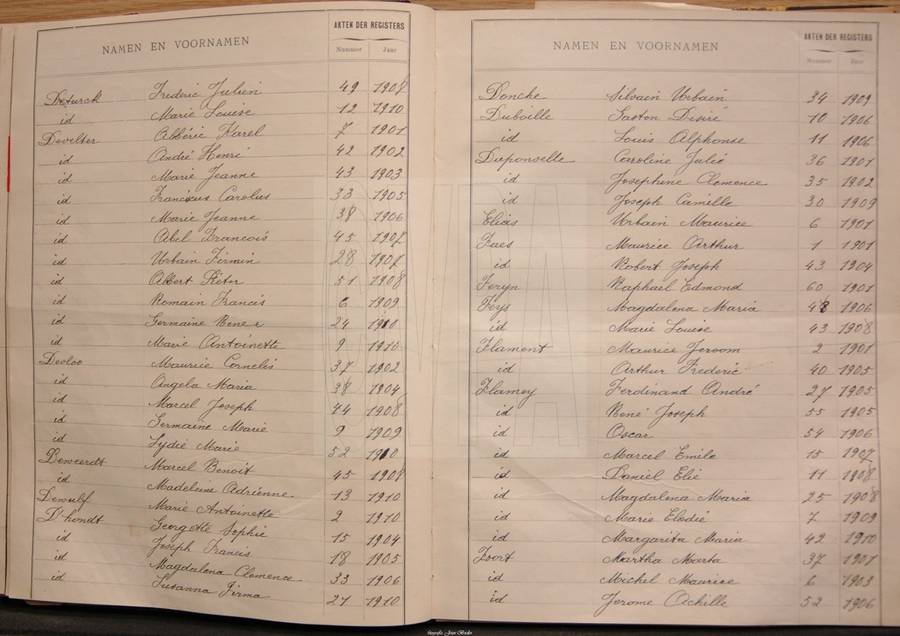 NAMEN EN VOORNAMEN AKTEN DER REGISTERS
Nummer Jaar
Deturck Frederic Julien 49 1908
id Marie Louise 12 1910
Develter Albéric Karel 7 1901
id André Henré 42 1902
id Marie Jeanne 43 1903
id Franciscus Carolus 33 1905
id Marie Jeanne 38 1906
id Abel Francois 45 1907
id Urbain Firmin 28 1907
id Albert Pieter 51 1908
id Romain Francis 6 1909
id Germaine 24 1910
id Marie Antoinette 9 1910
Devloo Maurice Cornelis 37 1902
id Angela Maria 38 1904
id Marcel Joseph 44 1908
id Germaine Marie 9 1909
id Lydie Marie 52 1910
Deweerdt Marcel Benoit 45 1908
id Madeleine Adrienne 13 1910
Dewulf Marie Antoinette 2 1910
D'hondt Georgette Sophie 15 1904
id Joseph Francis 18 1905
id Magdalena Clemence 33 1906
id Susanna Irma 21 1910
NAMEN EN VOORNAMEN AKTEN DER REGISTERS
Nummer Jaar
Doncke Silvain Urbain 34 1909
Duboille Gaston Desiré 10 1906
id Louis Alphonse 11 1906
Duponselle Caroline Julie 36 1901
id Josephine Clemence 35 1902
id Joseph Camille 30 1909
Elias Urbain Maurice 6 1901
Faes Maurice Arthur 1 1901
id Robert Joseph 43 1904
Feryn Raphaël Edmond 60 1901
Feys Magdalena Maria 48 1906
id Marie Louise 43 1908
Flament Maurice Jeroom 2 1901
id Arthur Frederic 40 1905
Flamey Ferdinand André 27 1905
id René Joseph 55 1905
id Oscar 54 1906
id Marcel Emile 15 1907
id Daniël Elie 11 1908
id Magdalena Maria 25 1908
id Marie Elodie 7 1909
id Margarita Maria 42 1910
Foort Martha Maria 37 1901
id Michel Maurice 6 1903
id Jerome Achille 52 1906